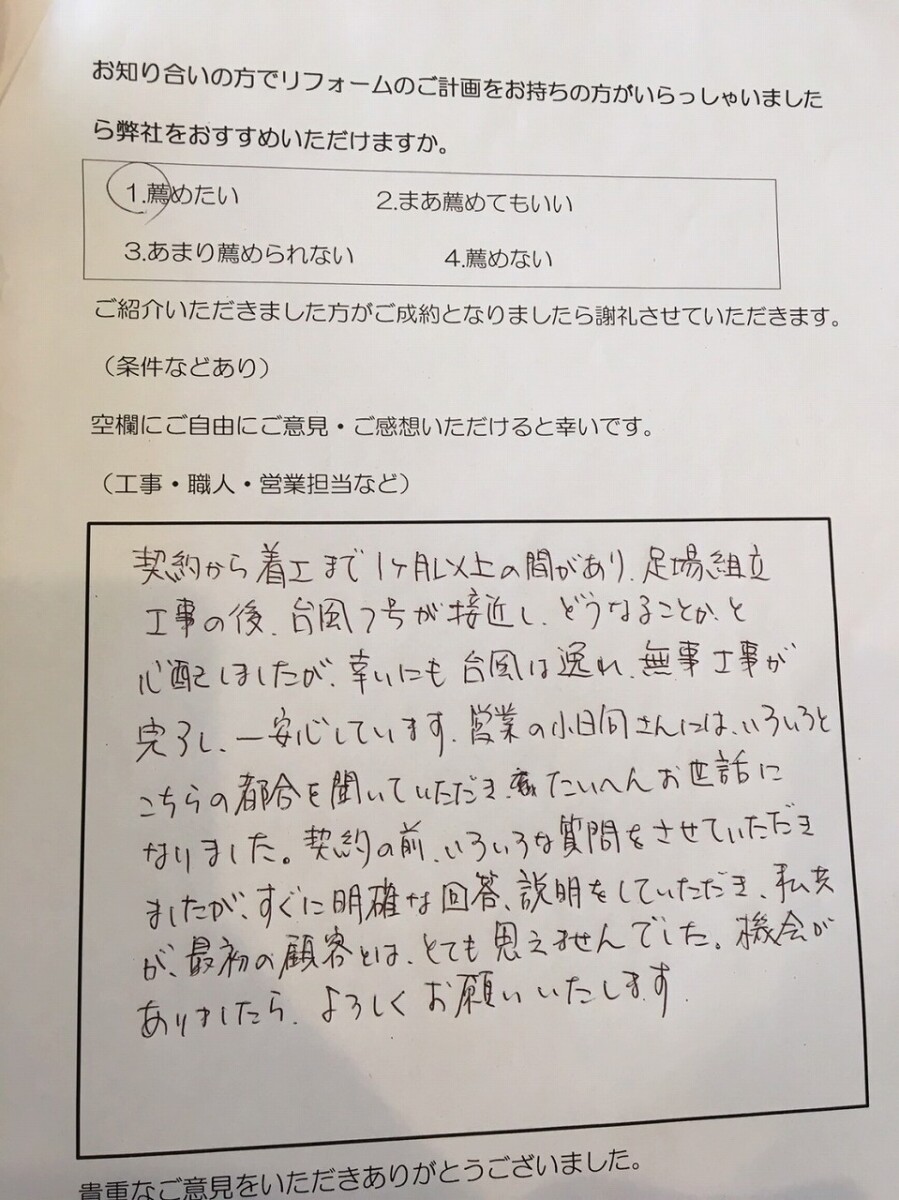 お知り合いの方でリフォームのご計画をお持ちの方がいらっしゃいました
ら弊社をおすすめいただけますか。
1.薦めたい 2.まあ薦めてもいい
3.あまり薦められない 4.薦めない
ご紹介いただきました方がご成約となりましたら謝礼させていただきます。
（条件などあり）
空欄にご自由にご意見・ご感想いただけると幸いです。
（工事・職人・営業担当など）
契約から着工まで1ヶ月以上の間があり、足場組立
工事の後、台風7号が接近し、どうなることか、と
心配しましたが、幸いにも台風は逸れ、無事工事が
完了し、一安心しています。営業の小日向さんには、いろいろと
こちらの都合を聞いていただき、たいへんお世話に
なりました。契約の前、いろいろな質問をさせていただき
ましたが、すぐに明確な回答、説明をしていただき、私共
が、最初の顧客とは、とても思えませんでした。機会が
ありましたら、よろしくお願いいたします。
貴重なご意見をいただきありがとうございました。